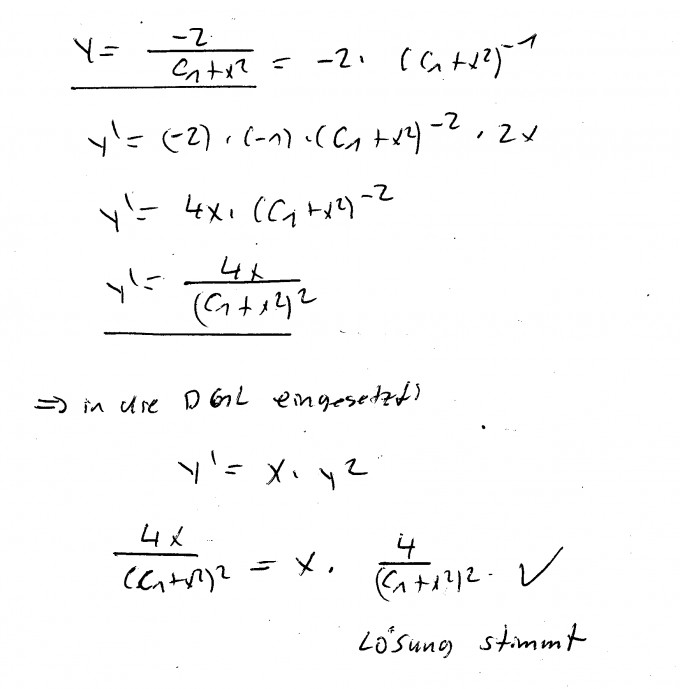 y = -2/(C₁+x²) = -2 · (C₁+x²)⁻¹
y' = (-2) · (-1) · (C₁+x²)⁻² · 2x
y' = 4x · (C₁+x²)⁻²
y' = 4x/(C₁+x²)²
⇒ in die DGL eingesetzt:
y' = x · y²
4x/(C₁+x²)² = x · 4/(C₁+x²)² ✓
Lösung stimmt